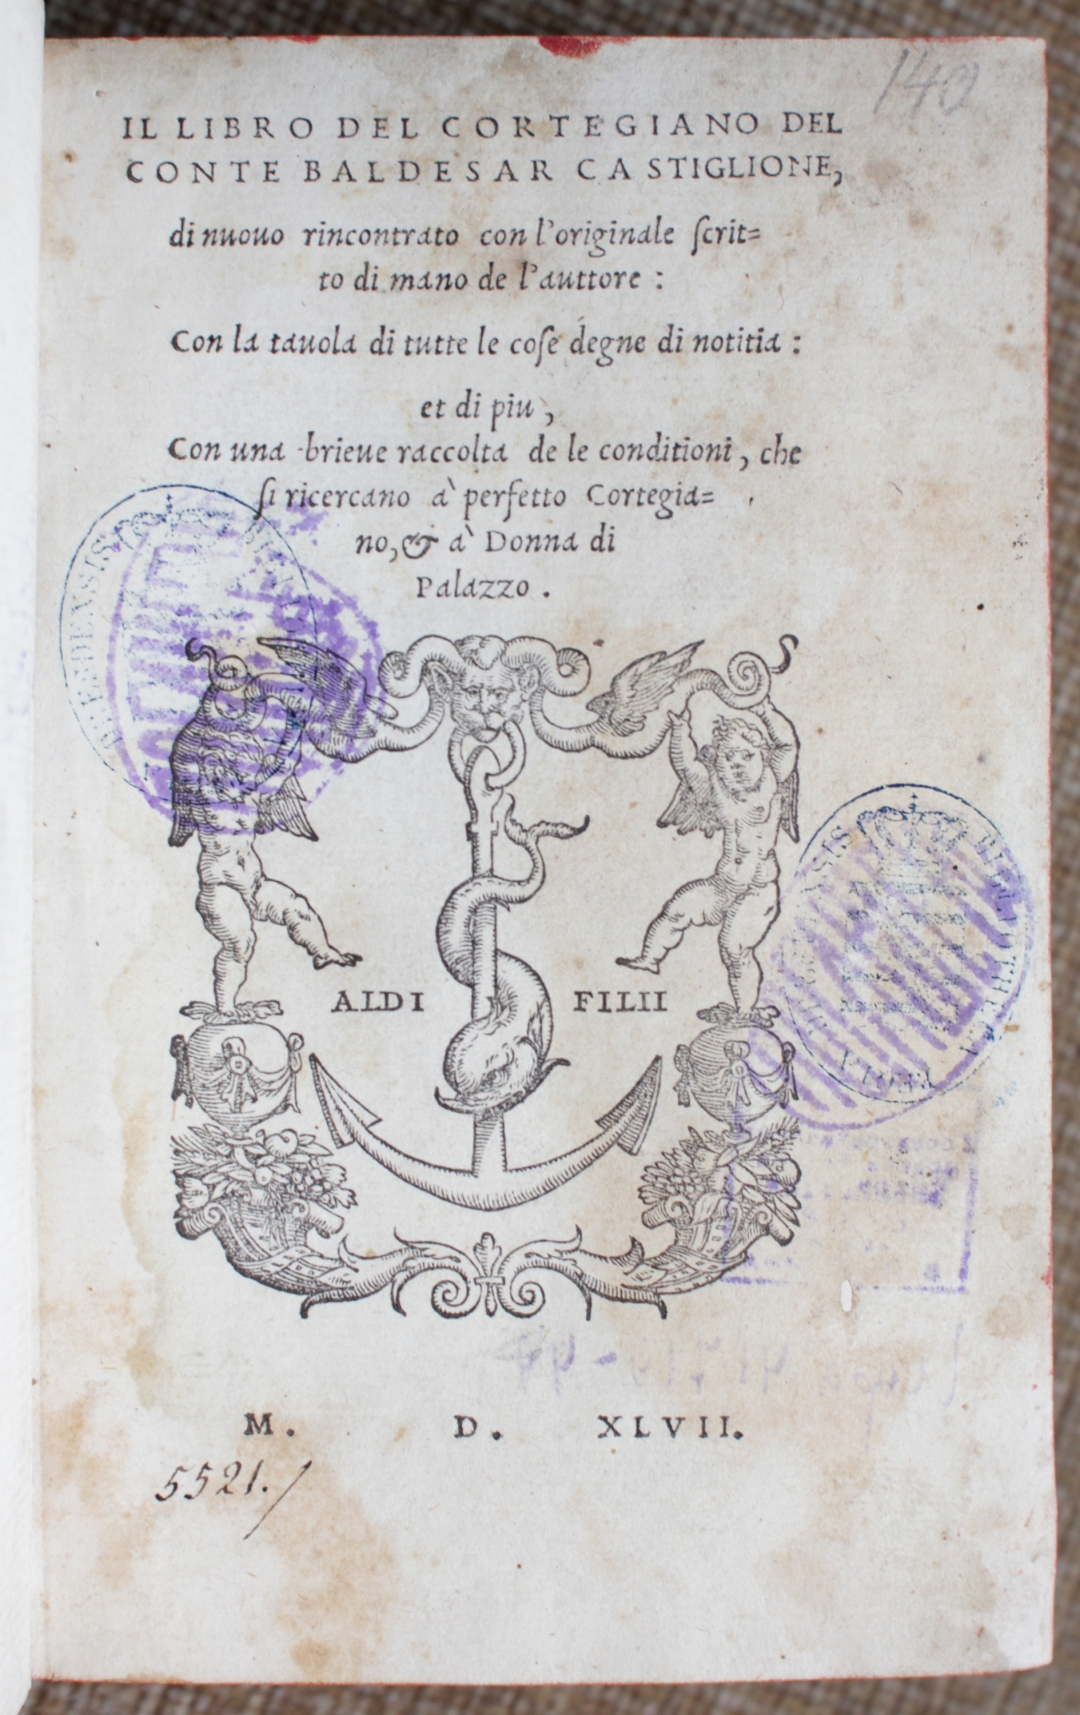 140
IL LIBRO DEL CORTEGIANO DEL
CONTE BALDESAR CASTIGLIONE,
di nuouo rincontrato con l'originale ſcrit=
to di mano de l'auttore :
Con la tauola di tutte le coſe degne di notitia :
et di piu ,
Con una brieue raccolta de le conditioni , che
ſi ricercano à perfetto Cortegia=
no, & à Donna di
Palazzo .
ALDI FILII
M. D. XLVII.
5521./